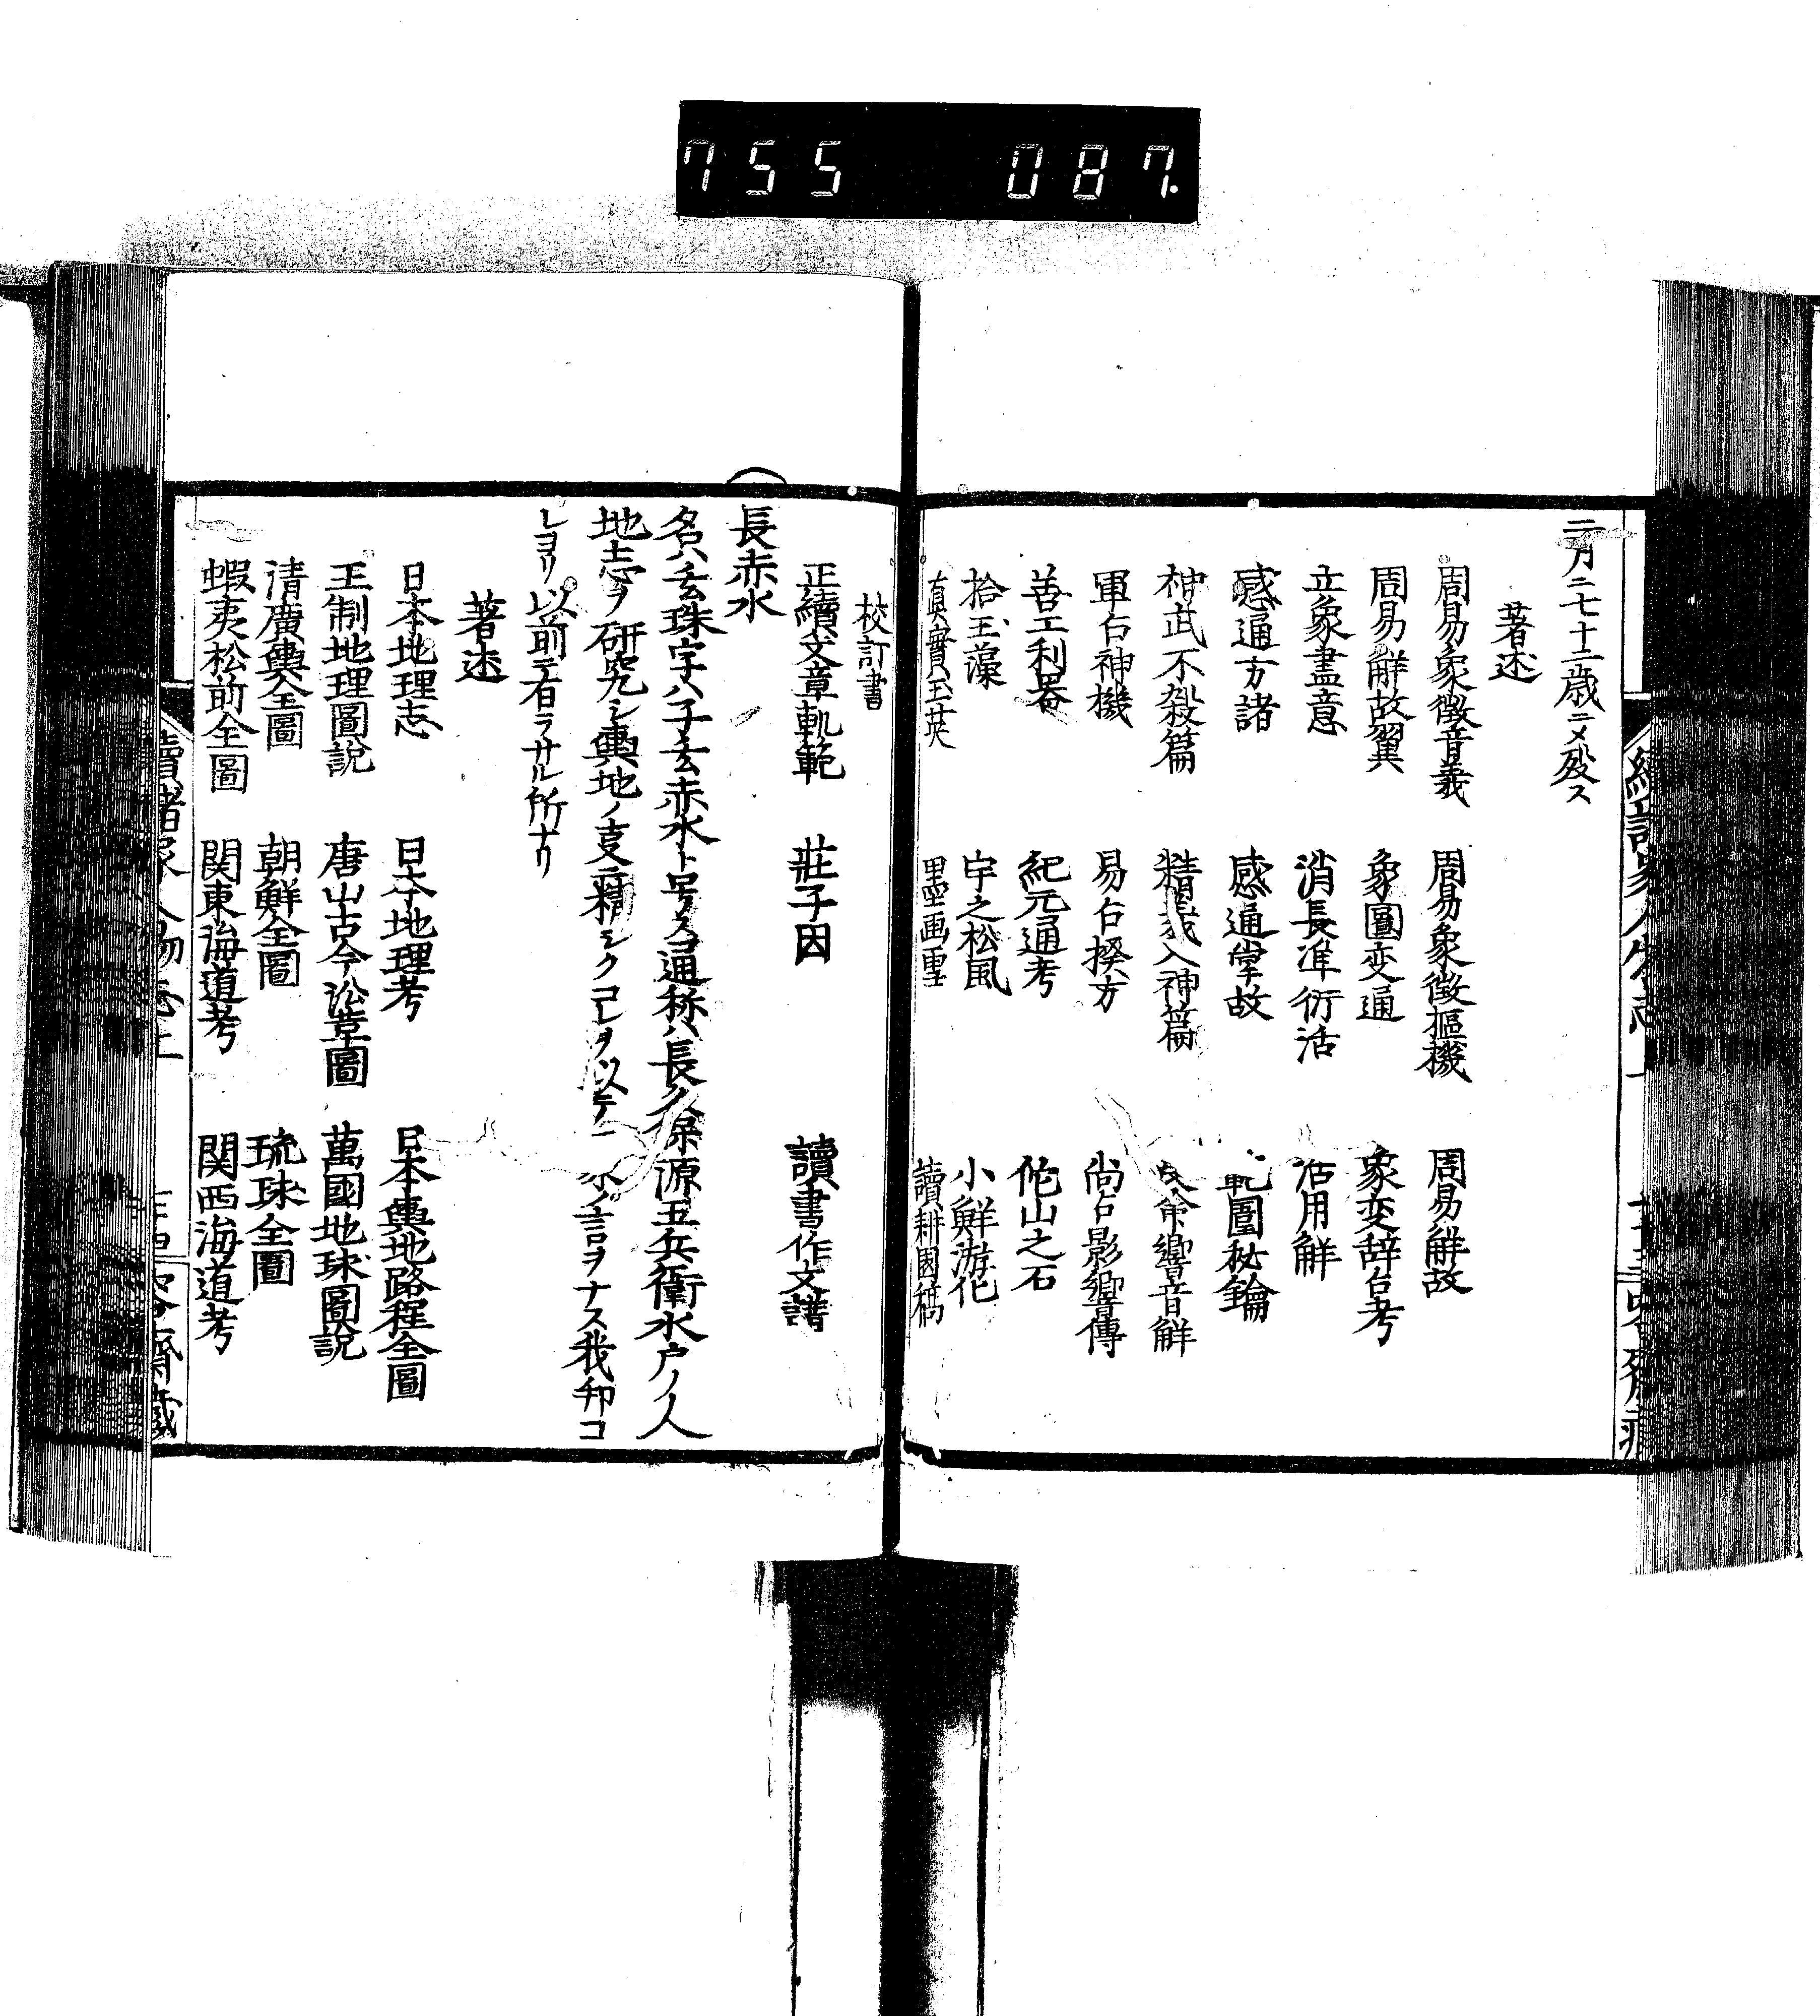 755 087.
二月ニ七十二歳ニメ殁ス
著述
周易象徴音義 周易象徴樞機 周易解故
周易解故翼 象圖变通 象変辞占考
立象盡意 消長準衍活 活用解
感通方諸 感通掌故 範圍秘鑰
神武不殺篇 精義入神篇 受命嚮音解
軍占神機 易占揆方 尚占影響傳
善工利器 紀元通考 佗山之石
拾玉藻 牢之松風 小鮮游化
真實玉英 墨画軍 讀耕園稿
校訂書
正續文章軌範 莊子因 讀書作文譜
長赤水
名ハ玄珠字ハ子玄赤水ト号ス通称ハ長久保源五兵衛水戸ノ人
地志ヲ研究シ輿地ノ支ニ精シクコレヲ以テ一家ノ言ヲナス我邦コ
レヨリ以前ニ有ラサル所ナリ
著述
日本地理志 日本地理考 日本輿地路程全圖
王制地理圖説 唐山古今沿革圖 萬國地球圖説
清廣輿全圖 朝鮮全圖 琉球全圖
蝦夷松前全圖 関東海道考 関西海道考